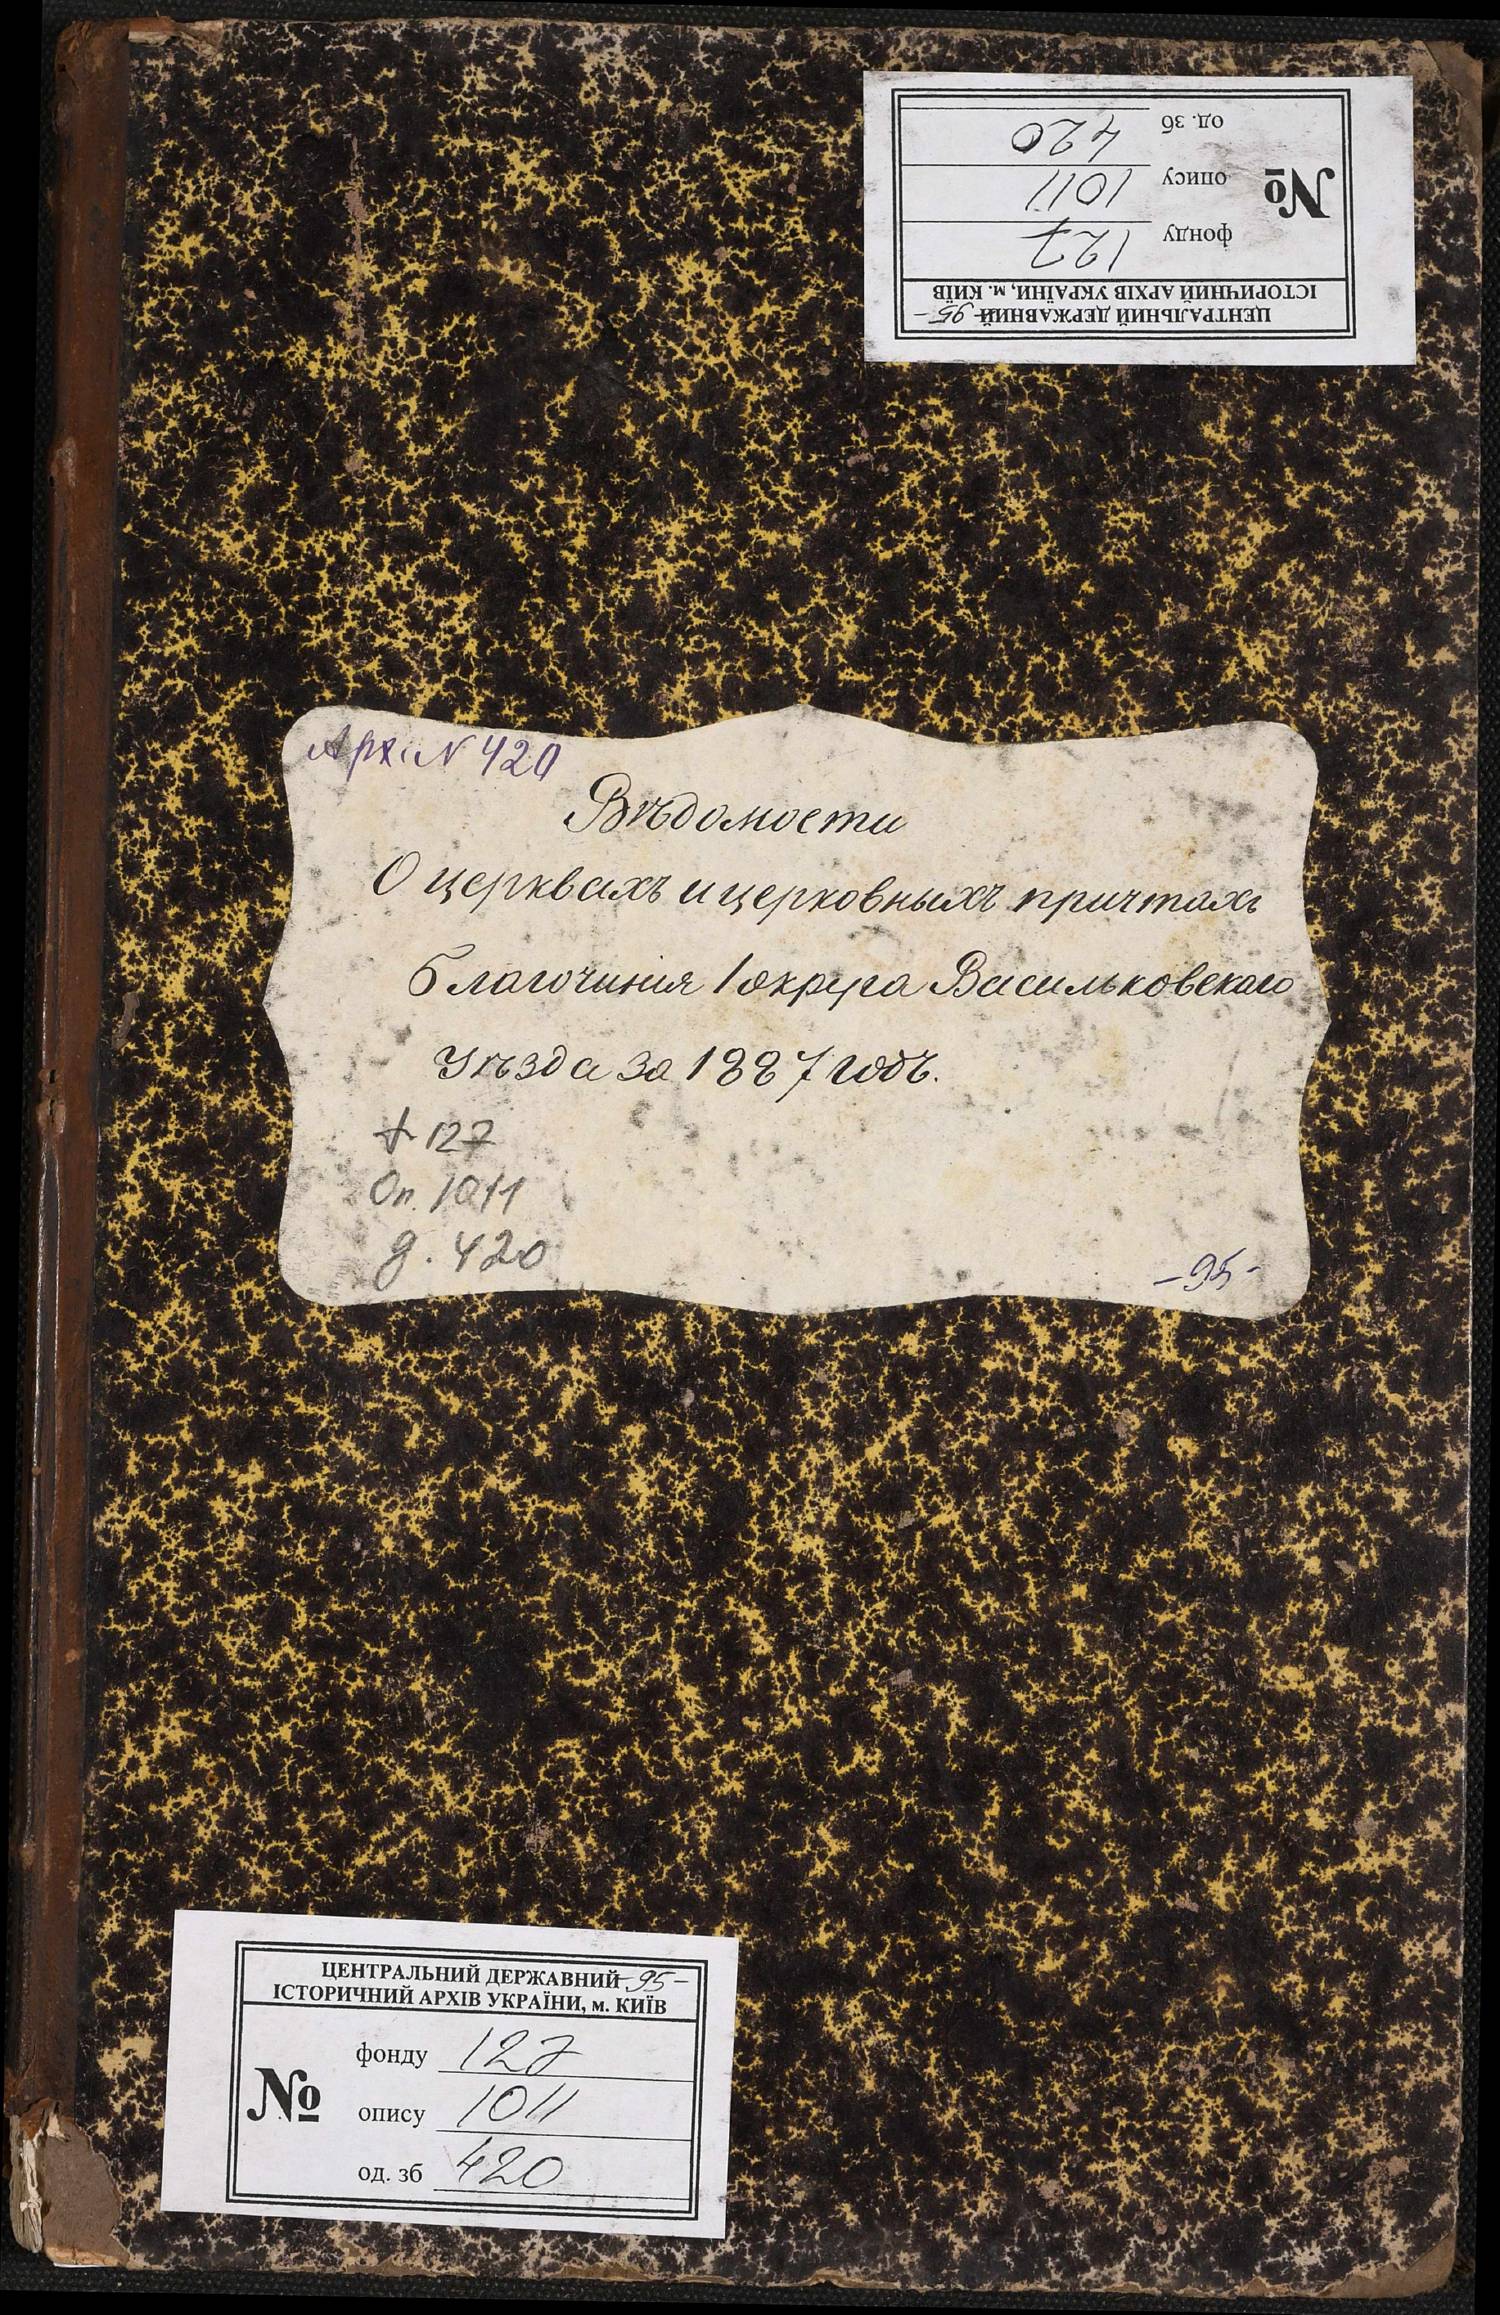 ЦЕНТРАЛЬНИЙ ДЕРЖАВНИЙ -95-
ІСТОРИЧНИЙ АРХІВ УКРАЇНИ, м. КИЇВ
№
фонду 127
опису 1011
од. зб 420
Арх. N 420
Вѣдомости
О церквахъ и церковныхъ причтахъ
Благочинія 1 округа Васильковскаго
Уѣзда за 1887 годъ.
ф 127
Оп. 1011
д. 420
-95-
ЦЕНТРАЛЬНИЙ ДЕРЖАВНИЙ -95-
ІСТОРИЧНИЙ АРХІВ УКРАЇНИ, м. КИЇВ
№
фонду 127
опису 1011
од. зб 420